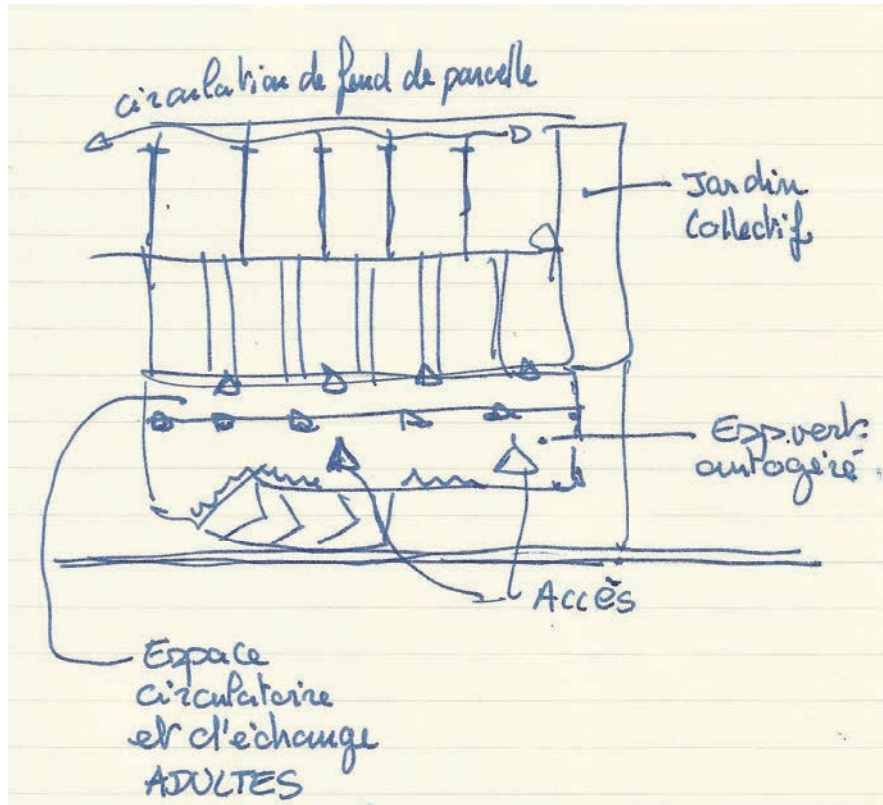 circulation de fond de parcelle
Jardin
Collectif
Esp. vert.
autogéré
Accès
Espace
circulatoire
et d'échange
ADULTES